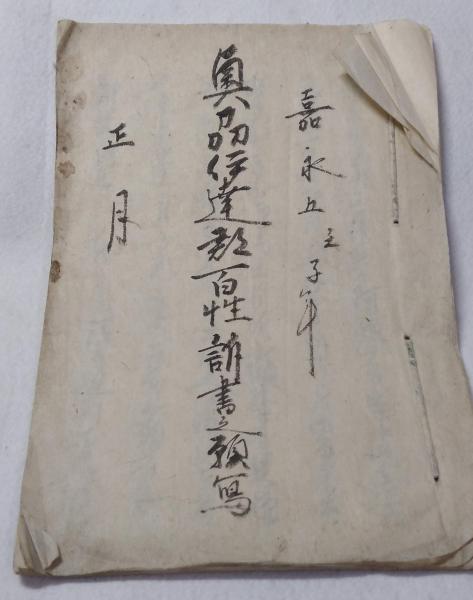 嘉永五壬子年
奥刕伊達郡百性訴書之願写
正月